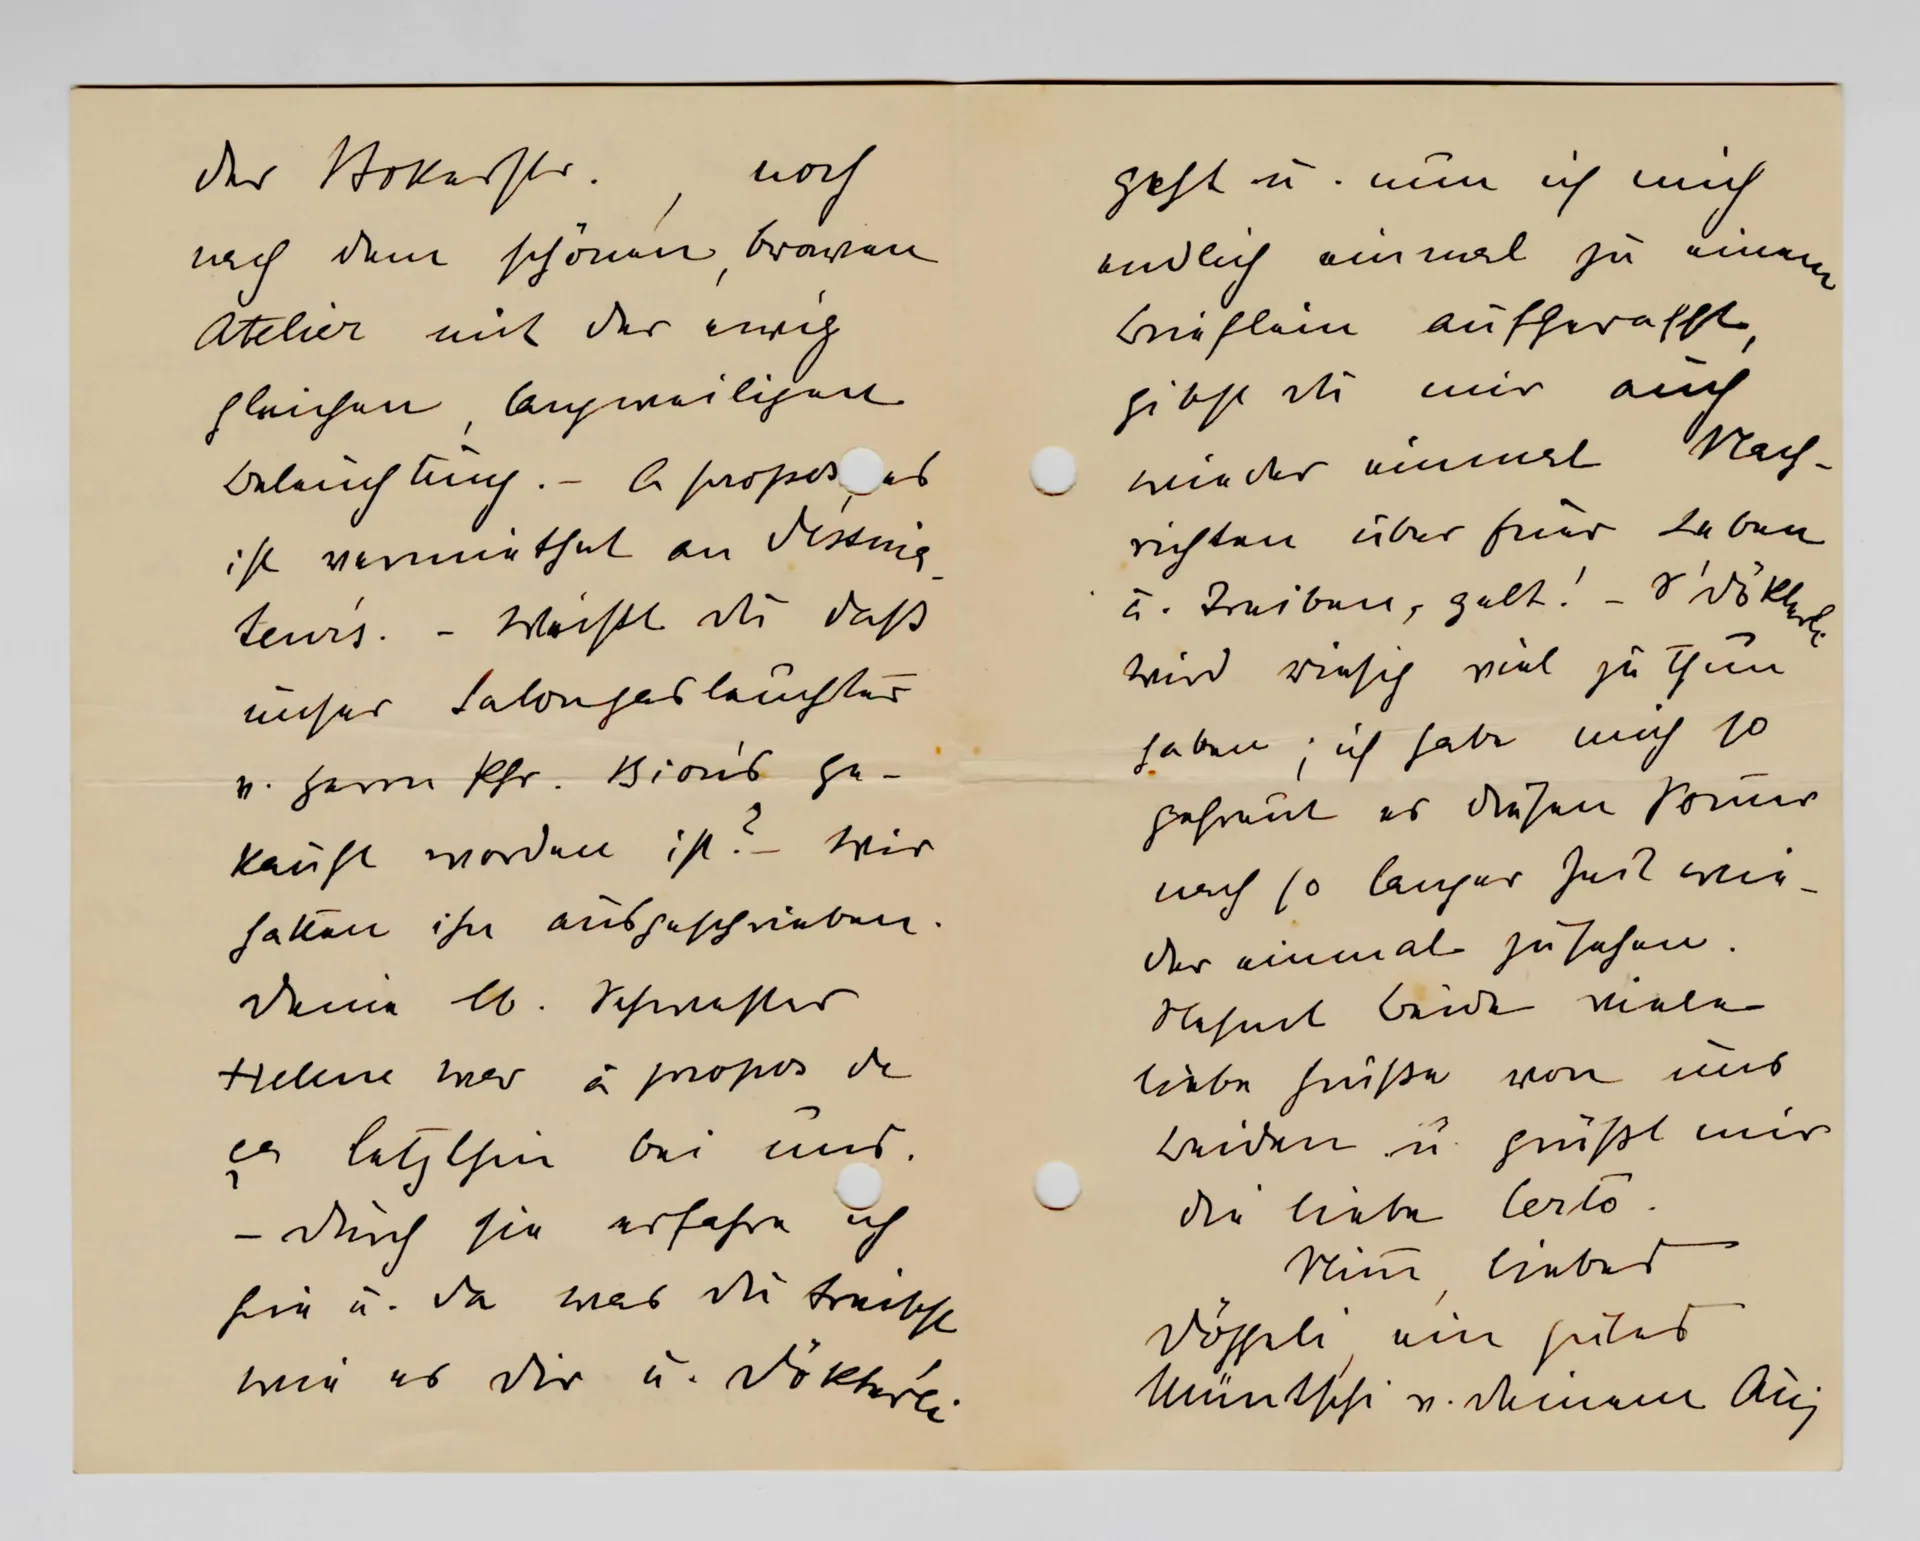 der Stokerstr. , noch
nach dem schönen, braven
Atelier mit der ewig
gleichen, langweiligen
Beleuchtung. – A propos, es
ist vermiethet an
– Weißt du daß
unser Salongasleuchter
v. Herrn Pfr. Bion's ge-
kauft worden ist? – Wir
hatten ihn ausgeschrieben.
Deine lb. Schwester
Helene war à propos de
ça letzthin bei uns.
– Durch sie erfahre ich
hie u. da was du treibst
wie es dir u. Dökterli
geht u. nun ich mich
endlich einmal zu einem
Brieflein aufgerafft,
gibst du mir auch
wieder einmal Nach-
richten über Euer Leben
u. Treiben, gelt! – S'Dökterli
wird riesig viel zu thun
haben; ich habe mich so
gefreut es diesen Sommer
nach so langer Zeit wie-
der einmal zu sehen.
Nehmt beide viele
liebe Grüße von uns
beiden u. grüßt mir
die liebe Certo.
Nimm, liebes
ein gutes
Müntschi v. deinem Aug